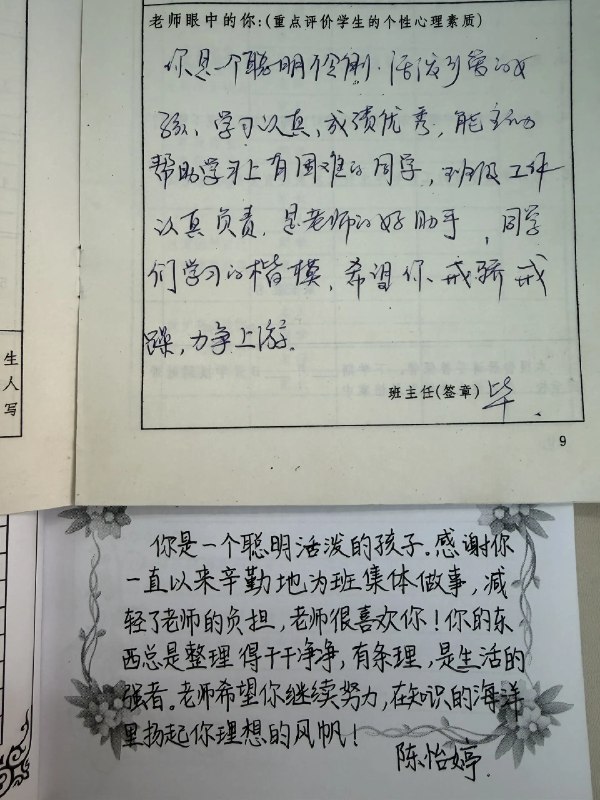 老师眼中的你:(重点评价学生的个性心理素质)
你是一个聪明伶俐、活泼可爱的女
孩、学习认真、成绩优秀,能主动
帮助学习上有困难的同学,班级工作
认真负责,是老师的好助手,同学
们学习的楷模,希望你戒骄戒
躁,力争上游。
班主任(签章)毕
9
生
人
写
你是一个聪明活泼的孩子。感谢你
一直以来辛勤地为班集体做事,减
轻了老师的负担,老师很喜欢你!你的东
西总是整理得干干净净,有条理,是生活的
强者。老师希望你继续努力,在知识的海洋
里扬起你理想的风帆!
陈怡婷.